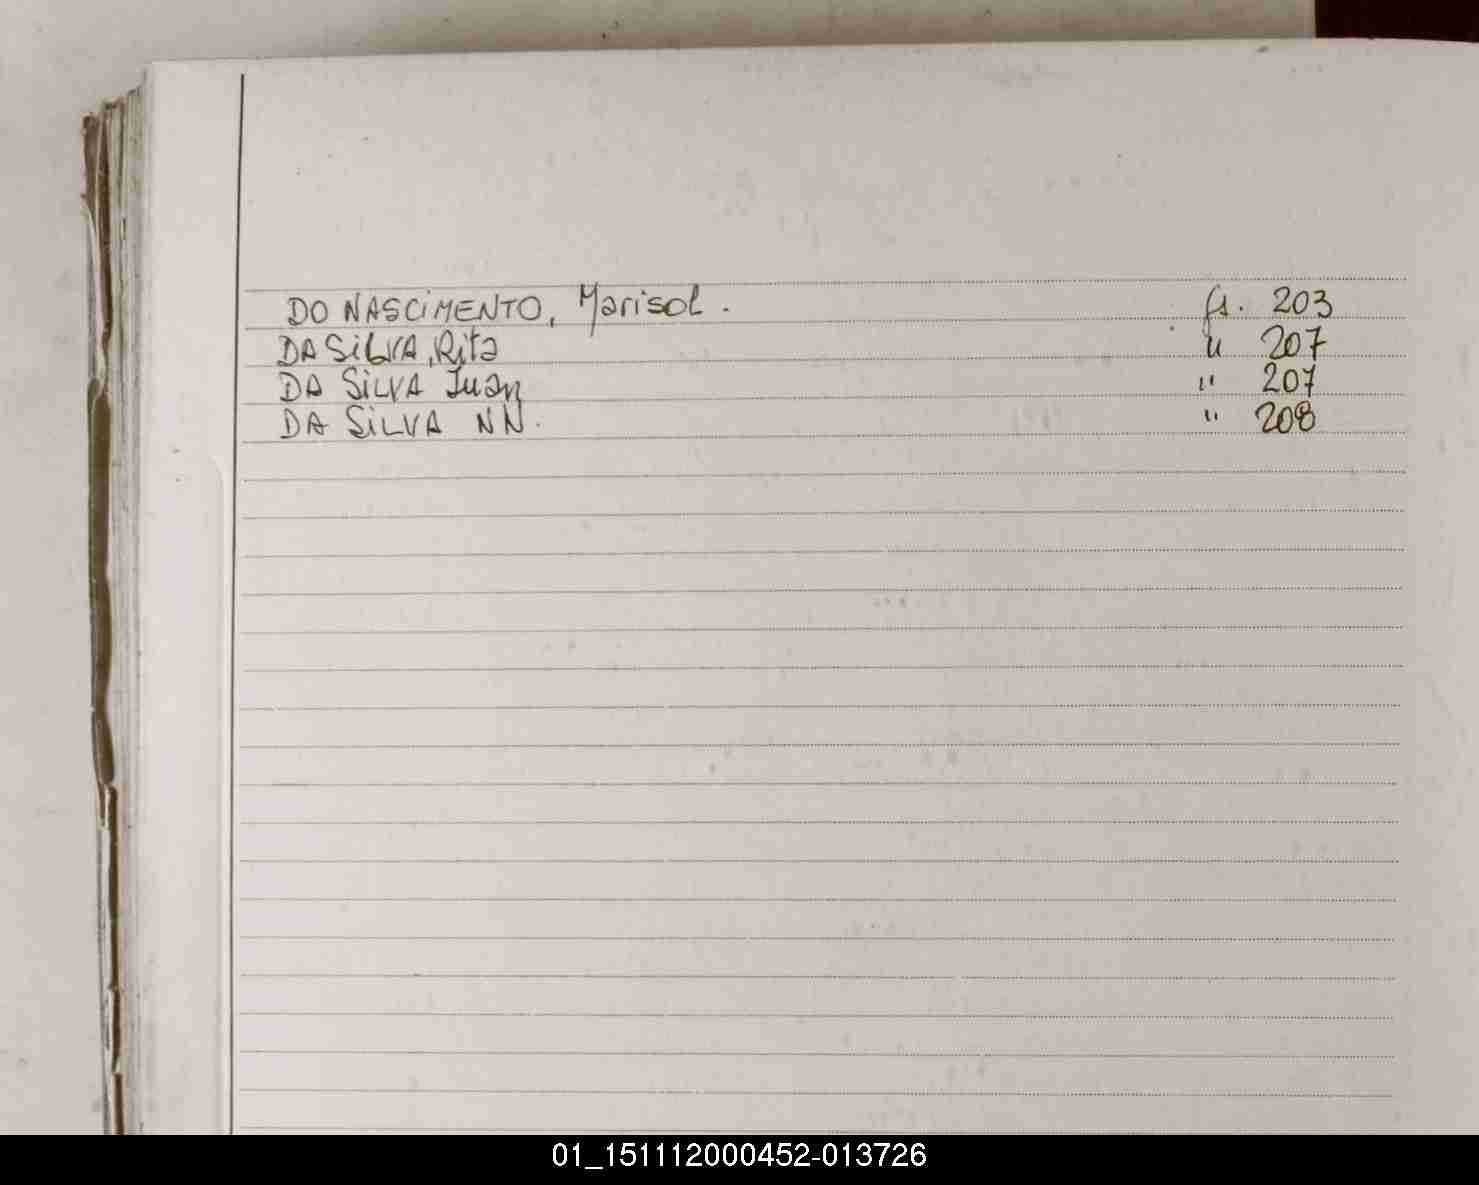 DO NASCIMENTO, Marisol. fs. 203
DA SILVA, Rita " 207
DA SILVA Juan " 207
DA SILVA NN. " 208
01_151112000452-013726